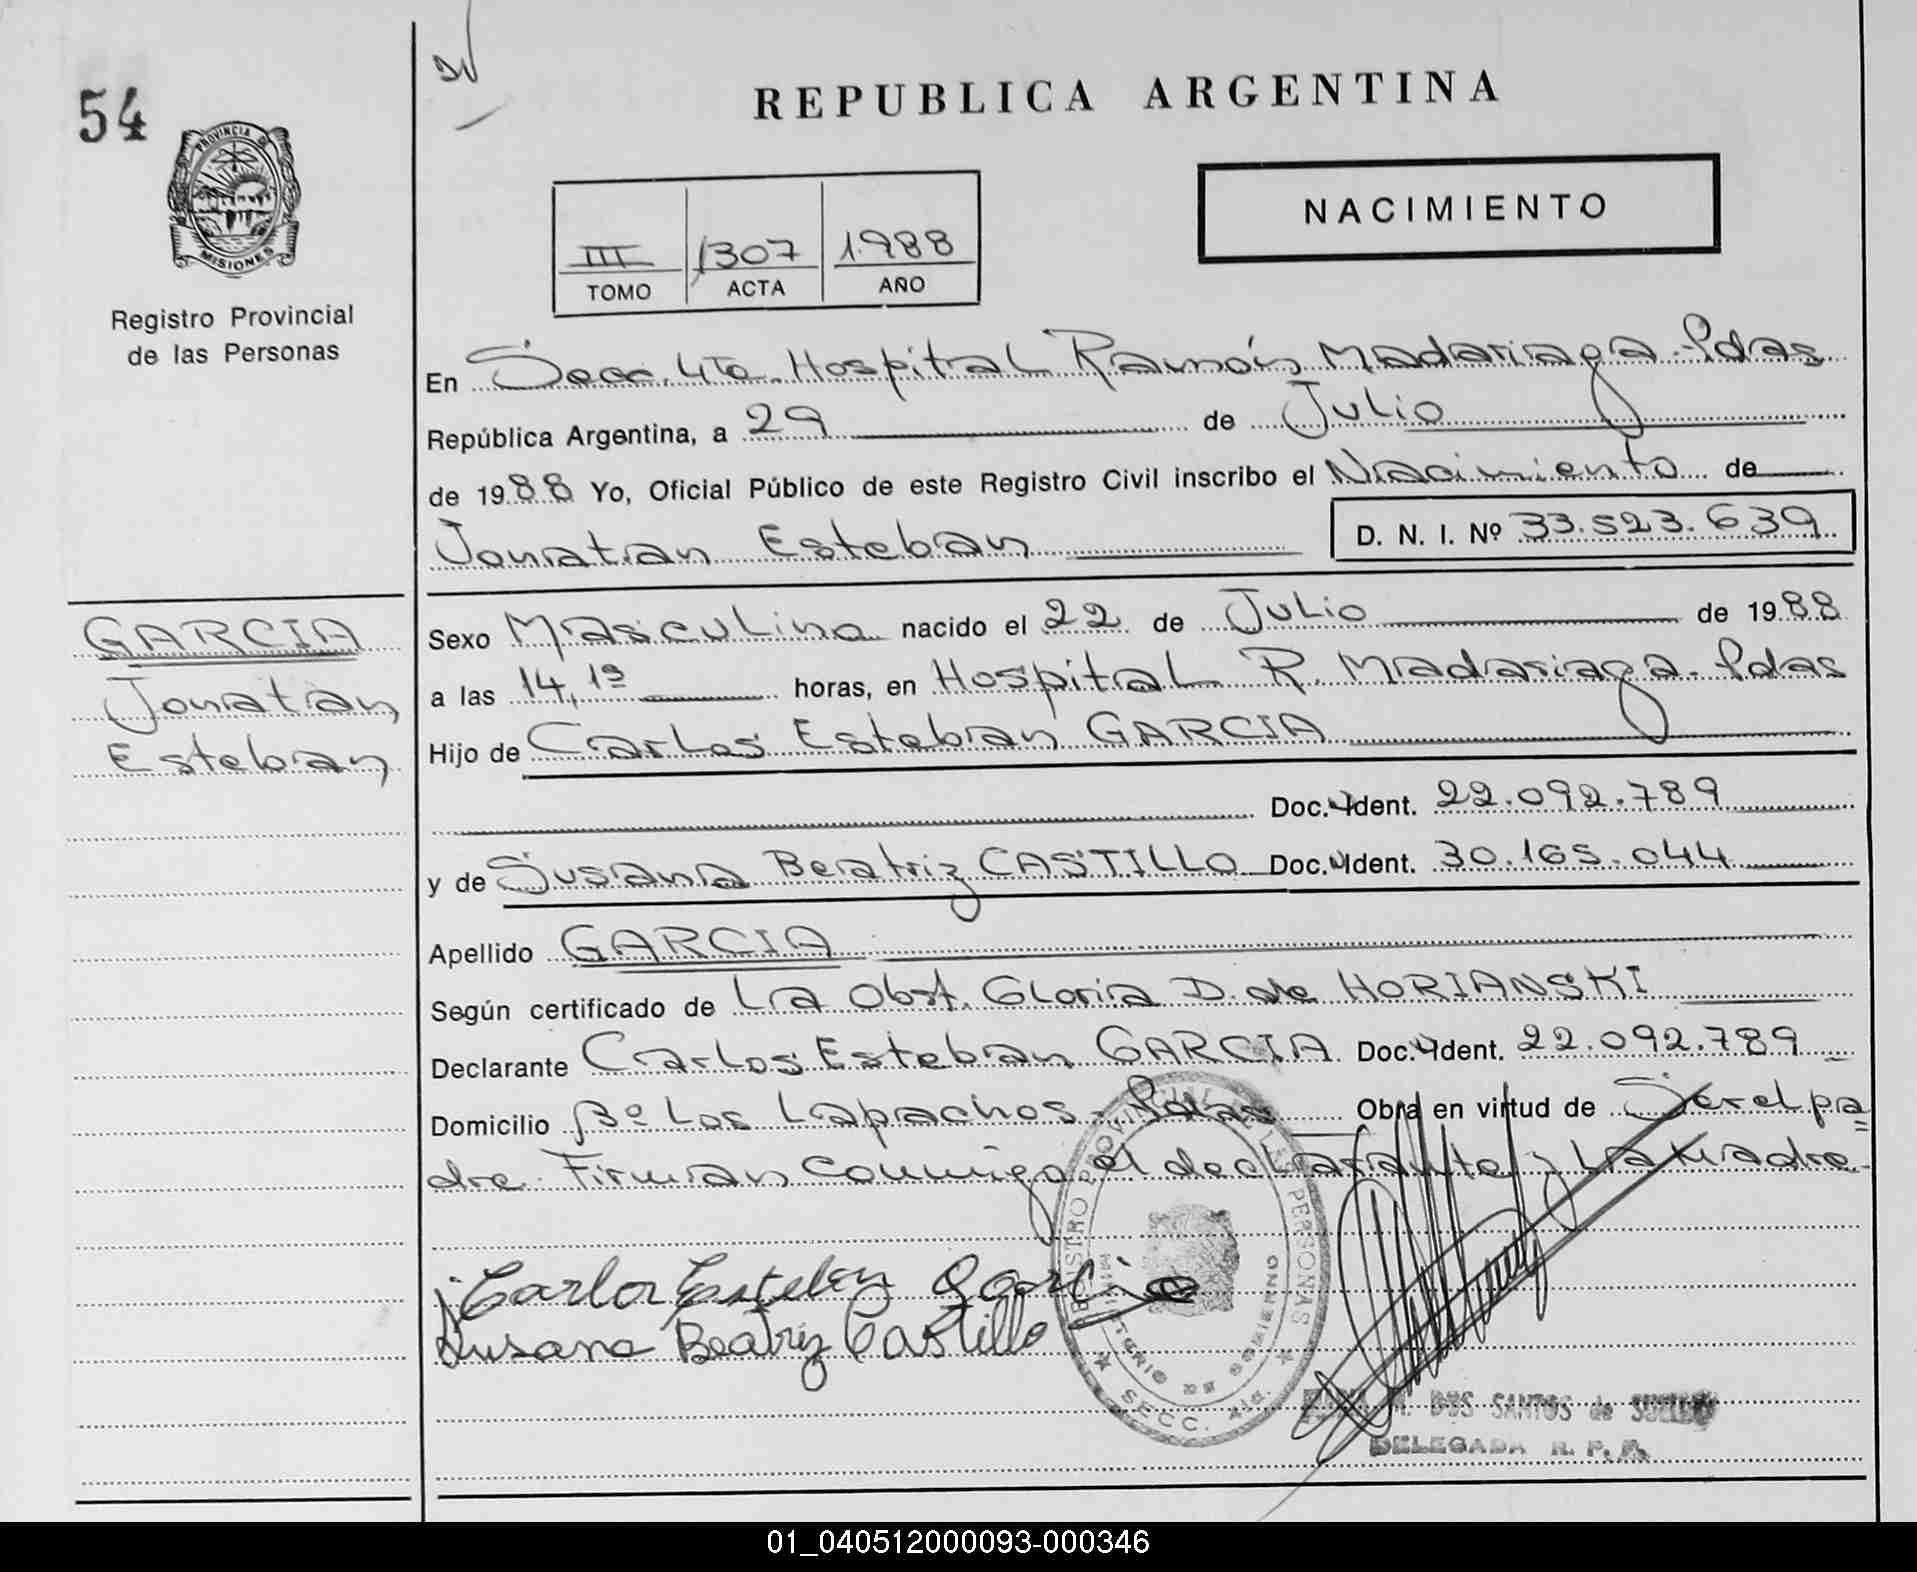 54
REPUBLICA ARGENTINA
PROVINCIA DE
MISIONES
Registro Provincial
de las Personas
III 1307 1.988
TOMO ACTA AÑO
NACIMIENTO
En Secc. 4ta. Hospital Ramón Madariaga - Pdas
República Argentina, a 29 de Julio
de 1988 Yo, Oficial Público de este Registro Civil inscribo el Nacimiento de
Jonatan Esteban D. N. I. Nº 33.523.639
GARCIA
Jonatan
Esteban
Sexo Masculino nacido el 22 de Julio de 1988
a las 14,15 horas, en Hospital R. Madariaga - Pdas
Hijo de Carlos Esteban GARCIA
Doc. Ident. 22.092.789
y de Susana Beatriz CASTILLO Doc. Ident. 30.165.044
Apellido GARCIA
Según certificado de La Obst. Gloria D. de HORIANSKI
Declarante Carlos Esteban GARCIA Doc. Ident. 22.092.789
Domicilio Bº Los Lapachos - Pdas Obra en virtud de Ser el pa
dre. Firman conmigo el declarante y la madre.
Carlos Esteban Garcia
Susana Beatriz Castillo
REGISTRO PROVINCIAL DE LAS PERSONAS
MINISTERIO DE GOBIERNO
SECC. 4ta.
M. DOS SANTOS de
DELEGADA R. P. P.
01_040512000093-000346